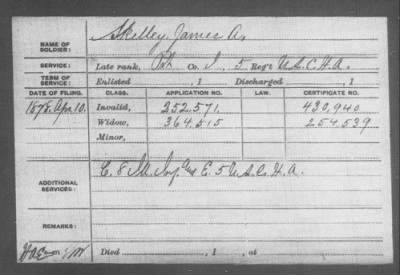 NAME OF SOLDIER: Skelley, James A.
SERVICE: Late rank, Pvt Co. I, 5 Reg't U.S.C.H.A.
TERM OF SERVICE: Enlisted , 1 Discharged , 1
DATE OF FILING. CLASS. APPLICATION NO. LAW. CERTIFICATE NO.
1878. Apr. 10. Invalid, 252.571. 430,940
Widow, 364.515 254.539
Minor,
ADDITIONAL SERVICES: C. 8 Inf. E. 5 U.S.C.H.A.
REMARKS:
Died , 1 , at